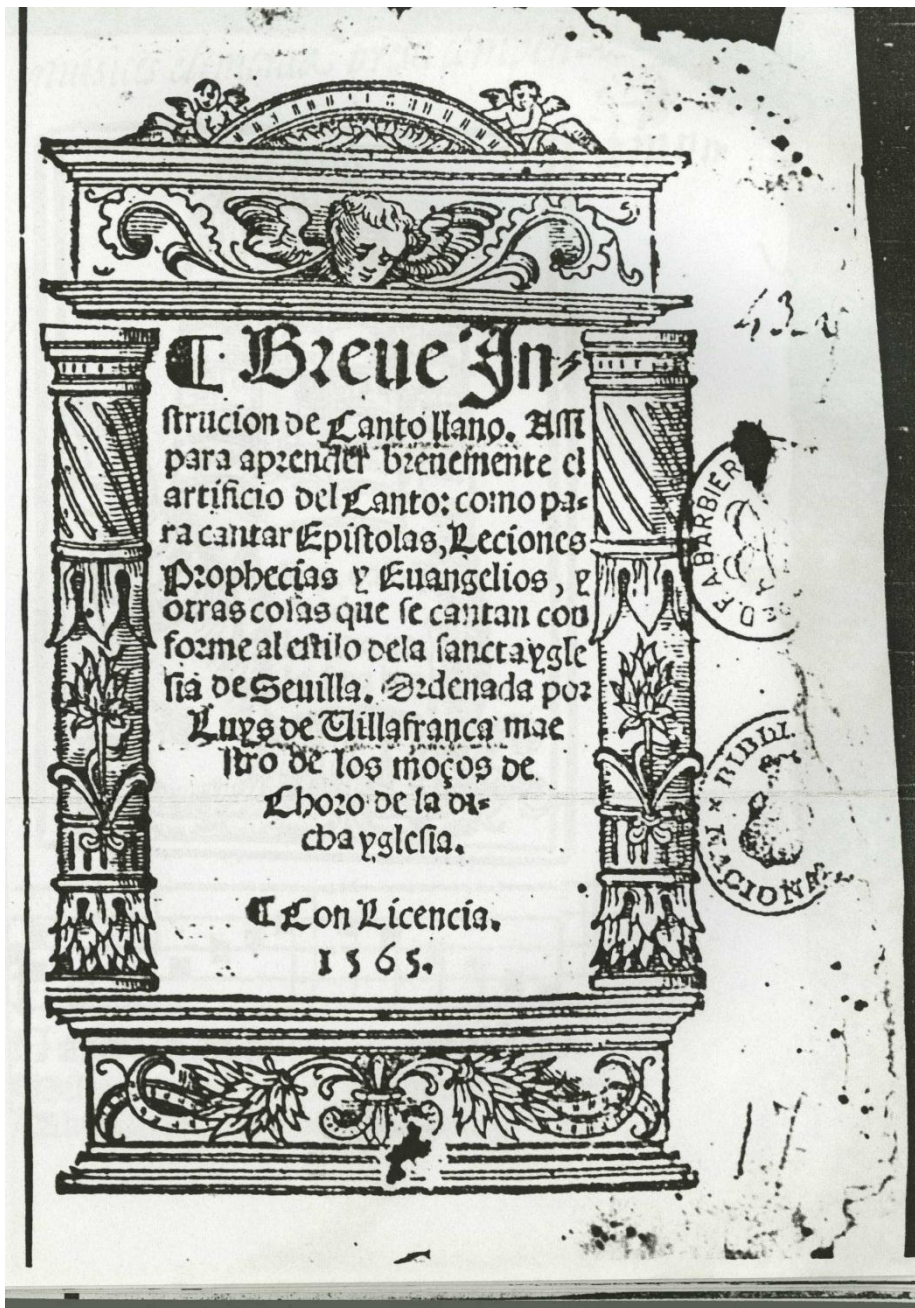 ¶ Breue In-
strucion de Canto llano. Assi
para aprender breuemente el
artificio del Canto: como pa-
ra cantar Epistolas, Leciones
Prophecias y Euangelios, y
otras cosas que se cantan con
forme al estilo dela sancta ygle
sia de Seuilla. Ordenada por
Luys de Uillafranca mae
stro de los moços de
Choro de la di-
cha yglesia.
¶ Con Licencia.
1565.
BARBIER
BIBLI
NACIONAL
17